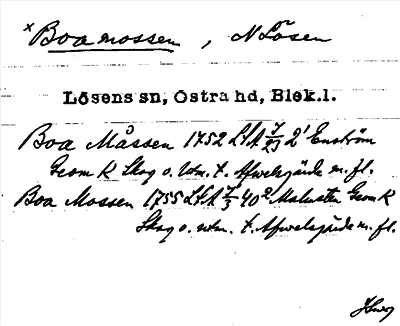 x Boa mossen, N Lösen
Lösens sn, Östra hd, Blek.l.
Boa Måssen 1752 LSA 7/23 2¹ Enström
Geom K Skog o. utm. t. Afwelsgärde m. fl.
Boa Mossen 1755 LSA 7/3 40² Malmsten Geom K
Skog o. utm. t. Afwelsgärde m. fl.